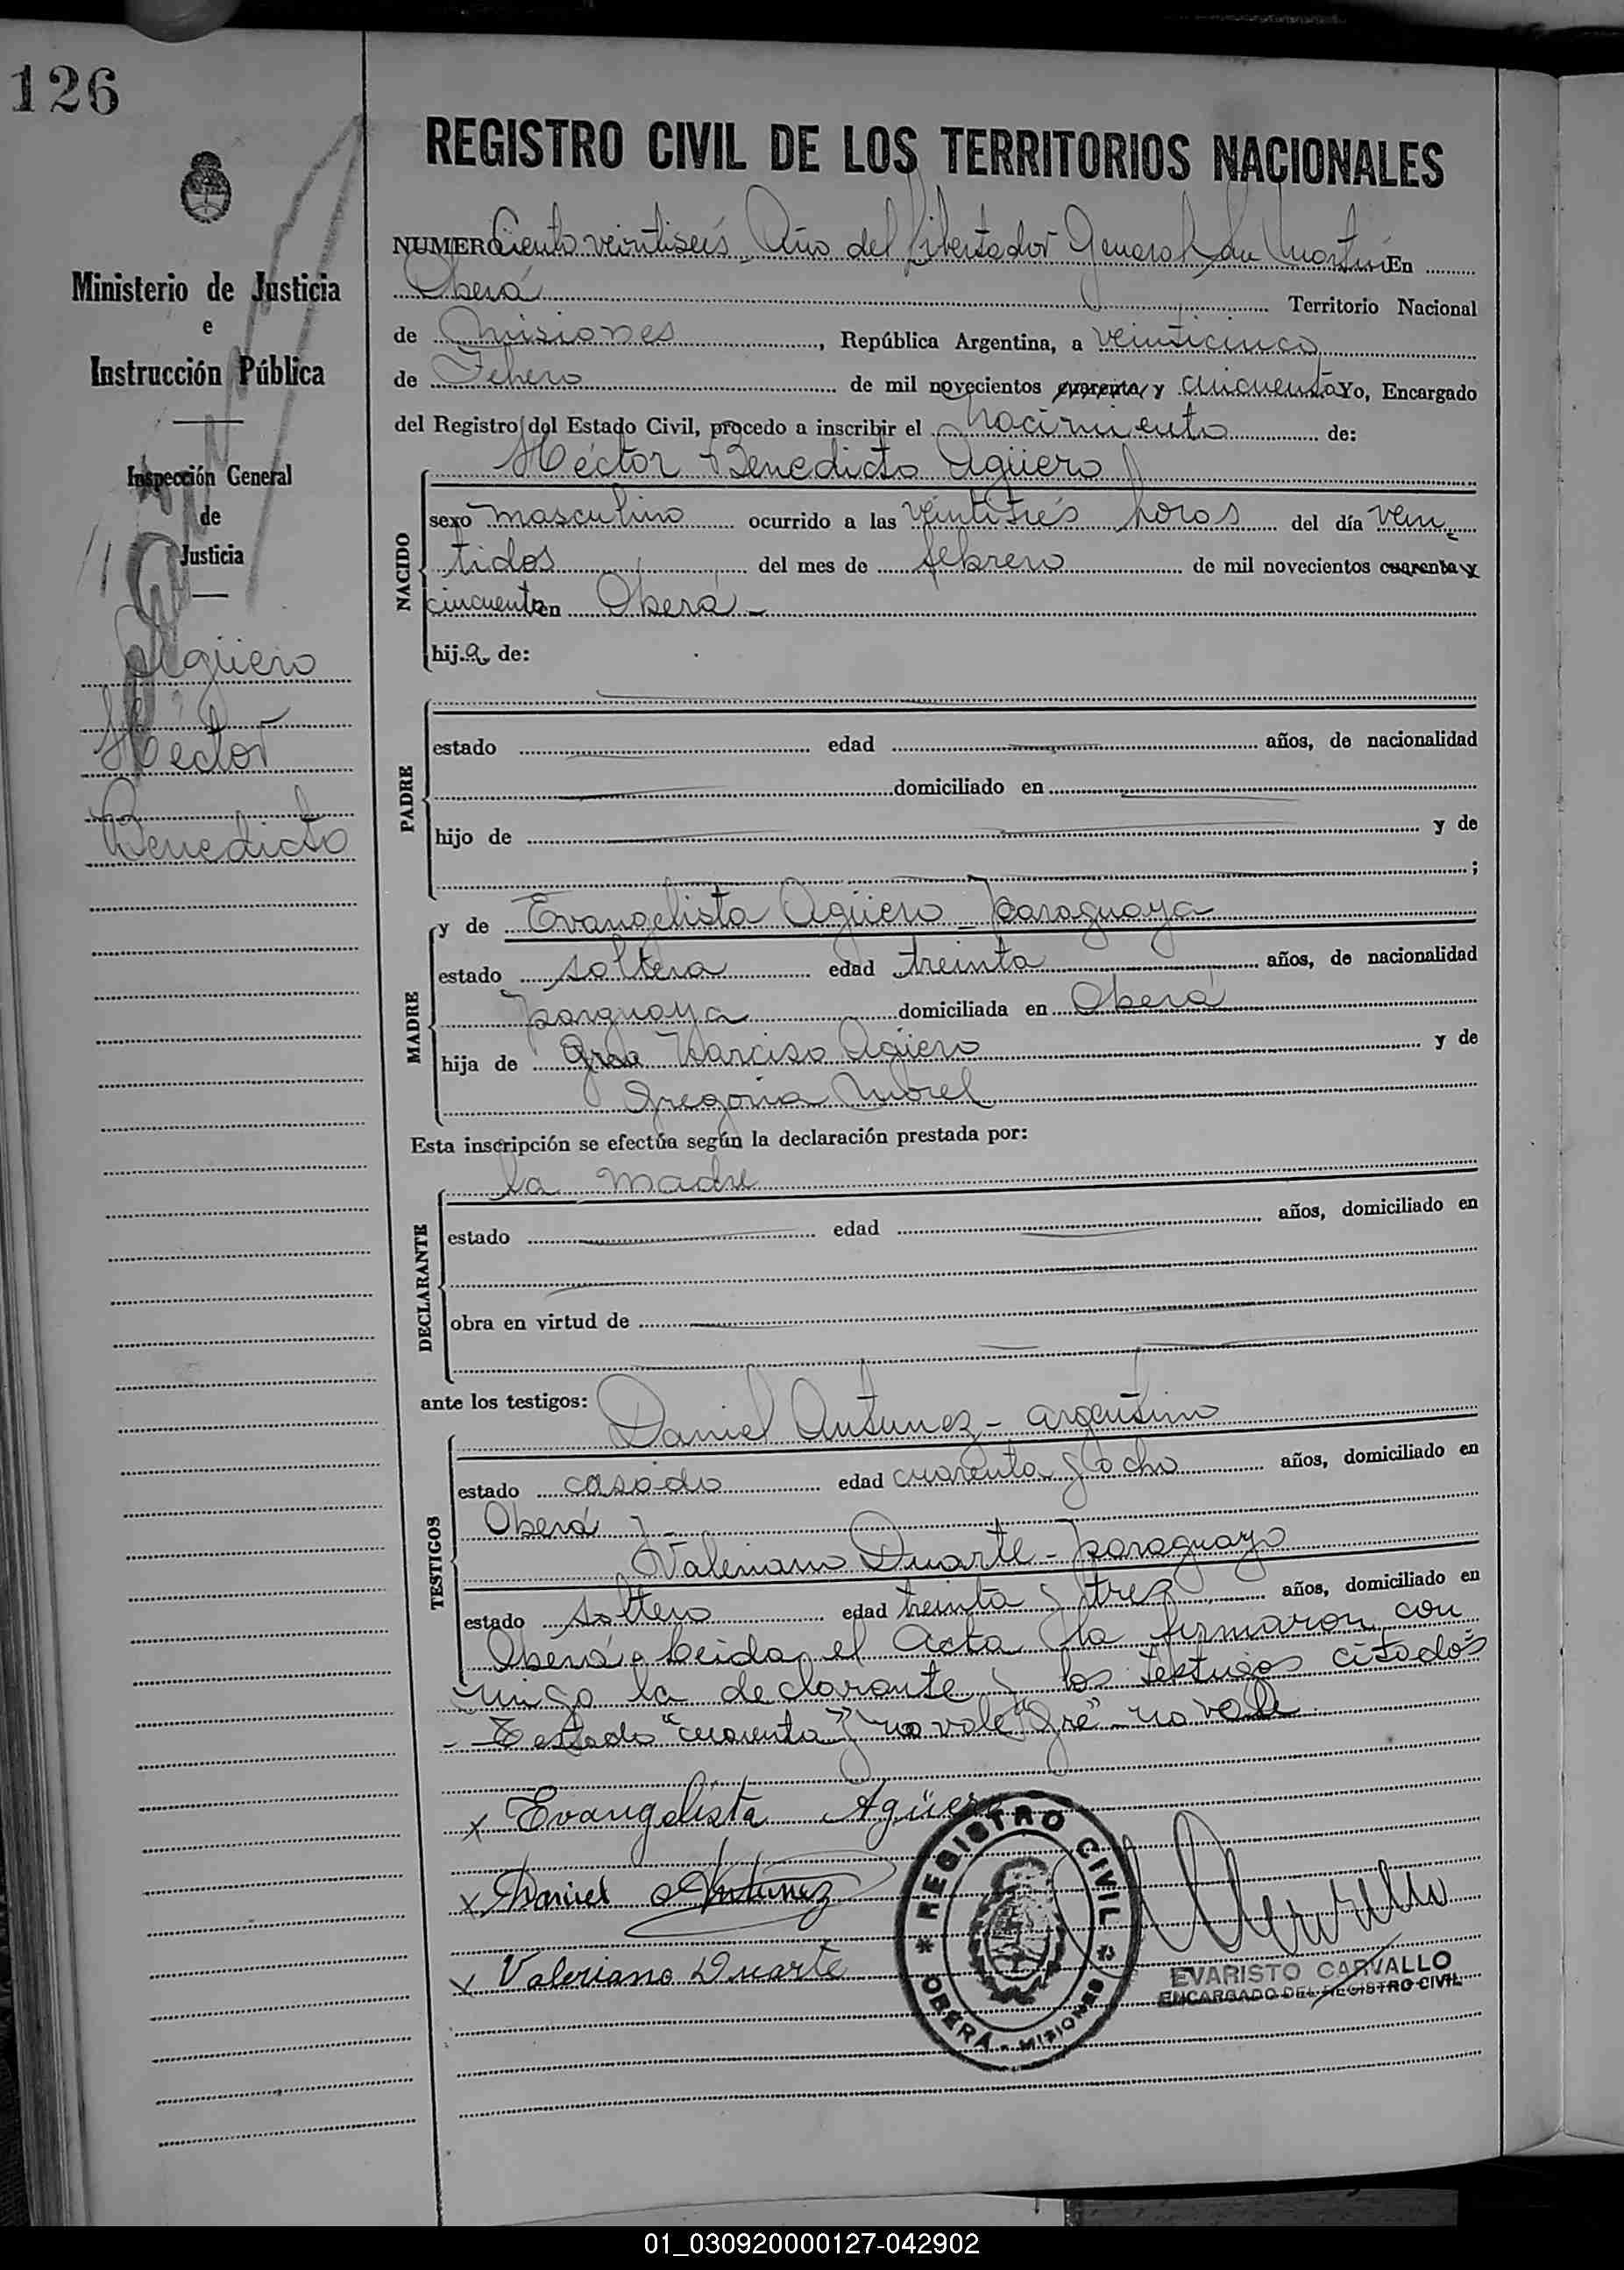 126
REGISTRO CIVIL DE LOS TERRITORIOS NACIONALES
Ministerio de Justicia
e
Instrucción Pública
Inspección General
de
Justicia
Agüero
Héctor
Benedicto
NUMERO Ciento veintiseis. Año del Libertador General San Martin En
Oberá Territorio Nacional
de Misiones, República Argentina, a veinticinco
de Febero de mil novecientos cuarenta y cincuenta Yo, Encargado
del Registro del Estado Civil, procedo a inscribir el nacimiento de:
Héctor Benedicto Agüero
NACIDO
sexo masculino ocurrido a las veintitrés horas del día vein
tidos del mes de febrero de mil novecientos cuarenta y
cincuenta en Oberá -
hij.a. de:
PADRE
estado edad años, de nacionalidad
domiciliado en
hijo de y de
;
MADRE
y de Evangelista Agüero - paraguaya
estado soltera edad treinta años, de nacionalidad
parguaya domiciliada en Oberá
hija de Gre Narciso Agüero y de
Gregoria Morel
Esta inscripción se efectúa según la declaración prestada por:
la madre
DECLARANTE
estado edad años, domiciliado en
obra en virtud de
ante los testigos:
TESTIGOS
Daniel Antunez - argentino
estado casado edad cuarenta y ocho años, domiciliado en
Oberá y
Valeriano Duarte - paraguayo
estado soltero edad treinta y tres años, domiciliado en
Oberá. Leida el Acta la firmaron con
migo la declarante y los testigos citados
- Testado "cuarenta y" no vale "Gre" - no vale
x Evangelista Agüero
x Daniel Antunez
x Valeriano Duarte
REGISTRO CIVIL
* OBERÁ - MISIONES *
EVARISTO CARVALLO
ENCARGADO DEL REGISTRO CIVIL
01_030920000127-042902